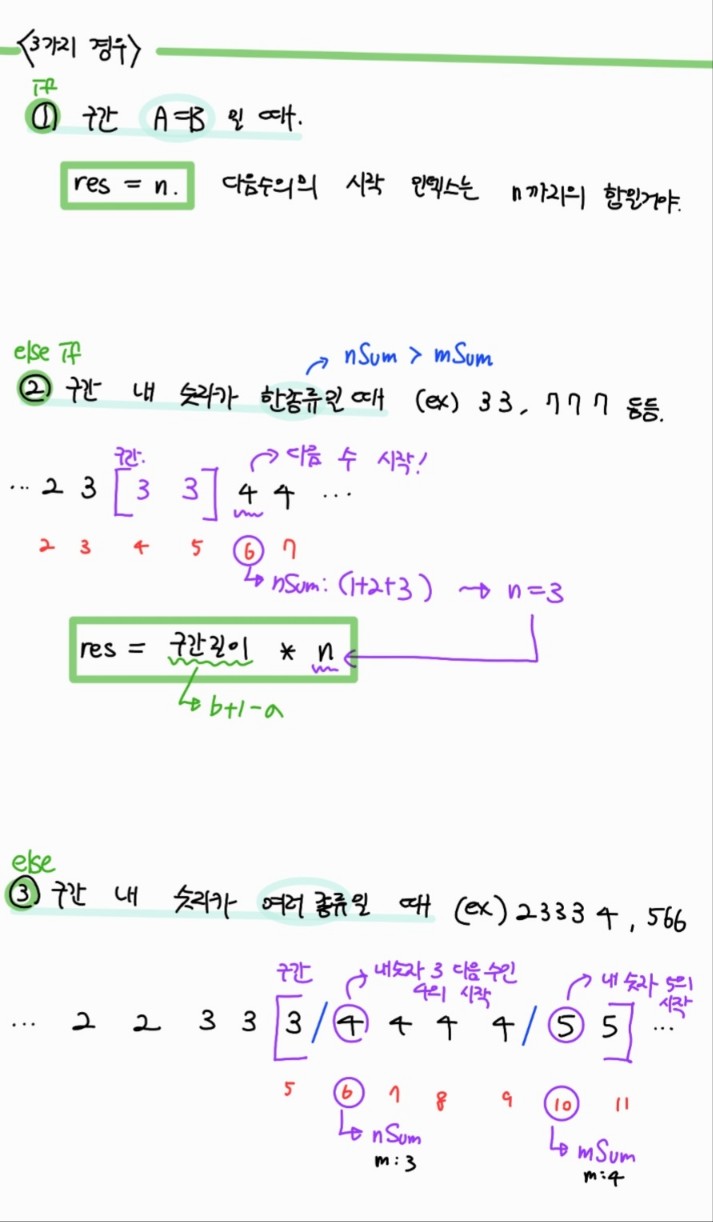 <3가지 경우>
if
① 구간 A=B 일 때.
res = n. 다음수의의 시작 인덱스는 n까지의 합일거야.
else if
nSum > mSum
② 구간 내 숫자가 한종류일 때 (ex) 33, 777 등등.
구간. 다음 수 시작!
... 2 3 [3 3] 4 4 ...
2 3 4 5 6 7
nSum: (1+2+3) → n=3
res = 구간길이 * n
b+1-a
else
③ 구간 내 숫자가 여러 종류일 때 (ex) 23334, 566
구간 내숫자 3 다음 수인 4의 시작 내 숫자 5의 시작
... 2 2 3 3 [3/4 4 4 4/5 5] ...
5 6 7 8 9 10 11
nSum mSum
m:3 m:4